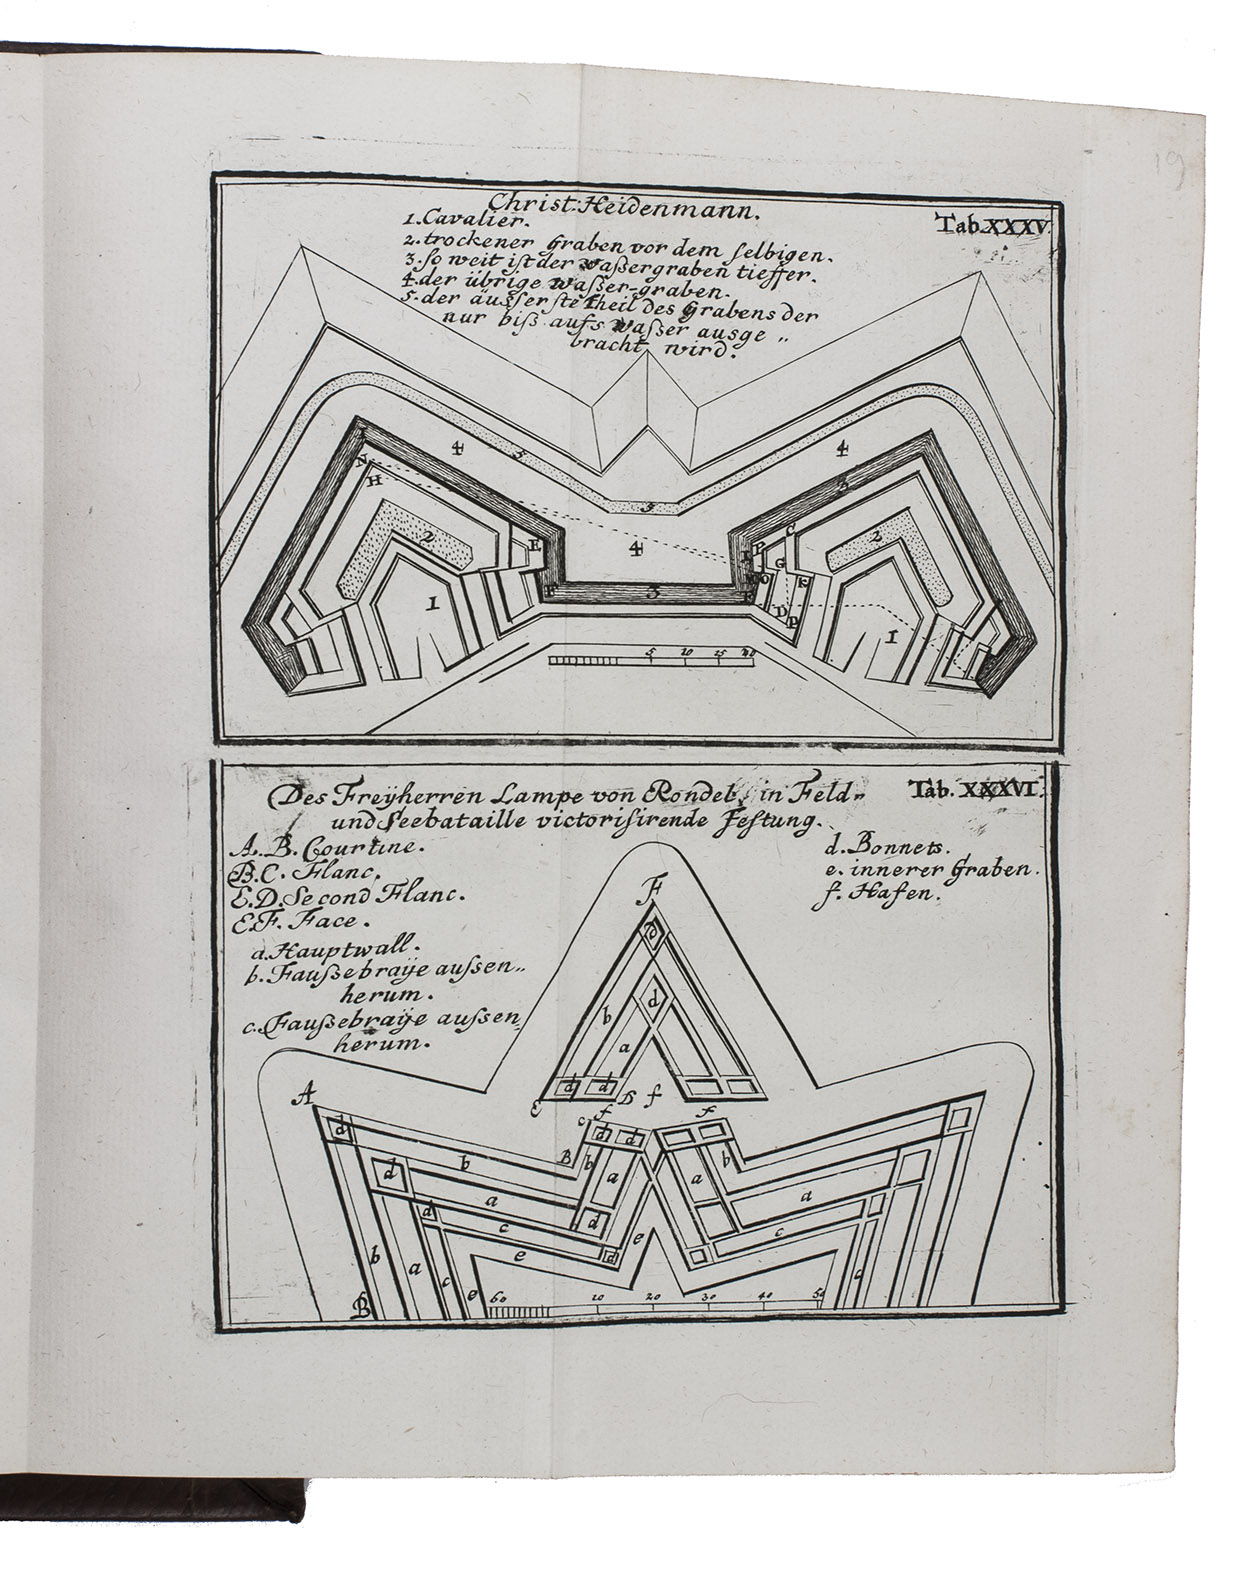 19
Christ: Heidenmann.
Tab. XXXV.
1. Cavalier.
2. trockener Graben vor dem selbigen.
3. so weit ist der Waßergraben tieffer.
4. der übrige Waßer-graben.
5. der äusserste Theil des Grabens der
nur biß aufs Waßer ausge„
bracht wird.
4 5 4
A
H 3
2 5 2
E 4 C
P
G
O K
1 F 3 F D P 1
5 10 15 20
Des Freÿherren Lampe von Rondel, in Feld„
und Seebataille victorisirende Festung.
Tab. XXXVI.
A. B. Courtine.
B. C. Flanc.
E. D. Second Flanc.
E. F. Face.
a. Hauptwall.
b. Faußebraÿe aussen„
herum.
c. Faußebraÿe aussen
herum.
d. Bonnets.
e. innerer Graben.
f. Hafen.
F
d
d
b
a
d d
E D f
A c f f
d d d
B b b
d b a a
a d a
d c d c
e d e
b a c e c
B 60 10 20 30 40 50